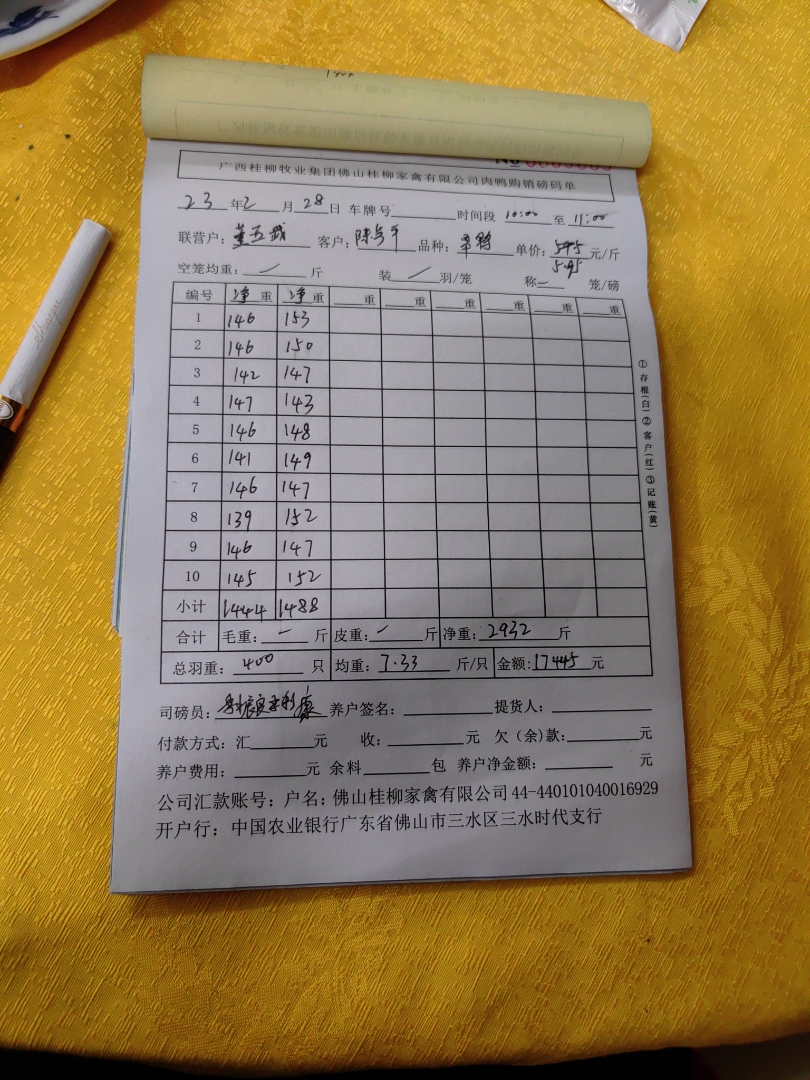 广西桂柳牧业集团佛山桂柳家禽有限公司肉鸭购销磅码单
23年2月28日 车牌号 时间段 10:00 至 11:00
联营户: 董五战 客户: 陈 品种: 单价: 5.95 元/斤
5.95
空笼均重: / 斤 装 / 羽/笼 称 — 笼/磅
编号 净重 净重 重 重 重 重 重 重
1 146 153
2 146 150
3 142 147
4 147 143
5 146 148
6 141 149
7 146 147
8 139 152
9 146 147
10 145 152
小计 1444 1488
合计 毛重: — 斤 皮重: / 斤 净重: 2932 斤
总羽重: 400 只 均重: 7.33 斤/只 金额: 17445 元
司磅员: 养户签名: 提货人:
付款方式: 汇 元 收: 元 欠(余)款: 元
养户费用: 元 余料 包 养户净金额: 元
公司汇款账号: 户名: 佛山桂柳家禽有限公司 44-440101040016929
开户行: 中国农业银行广东省佛山市三水区三水时代支行
①存根(白)②客户(红)③记账(黄)